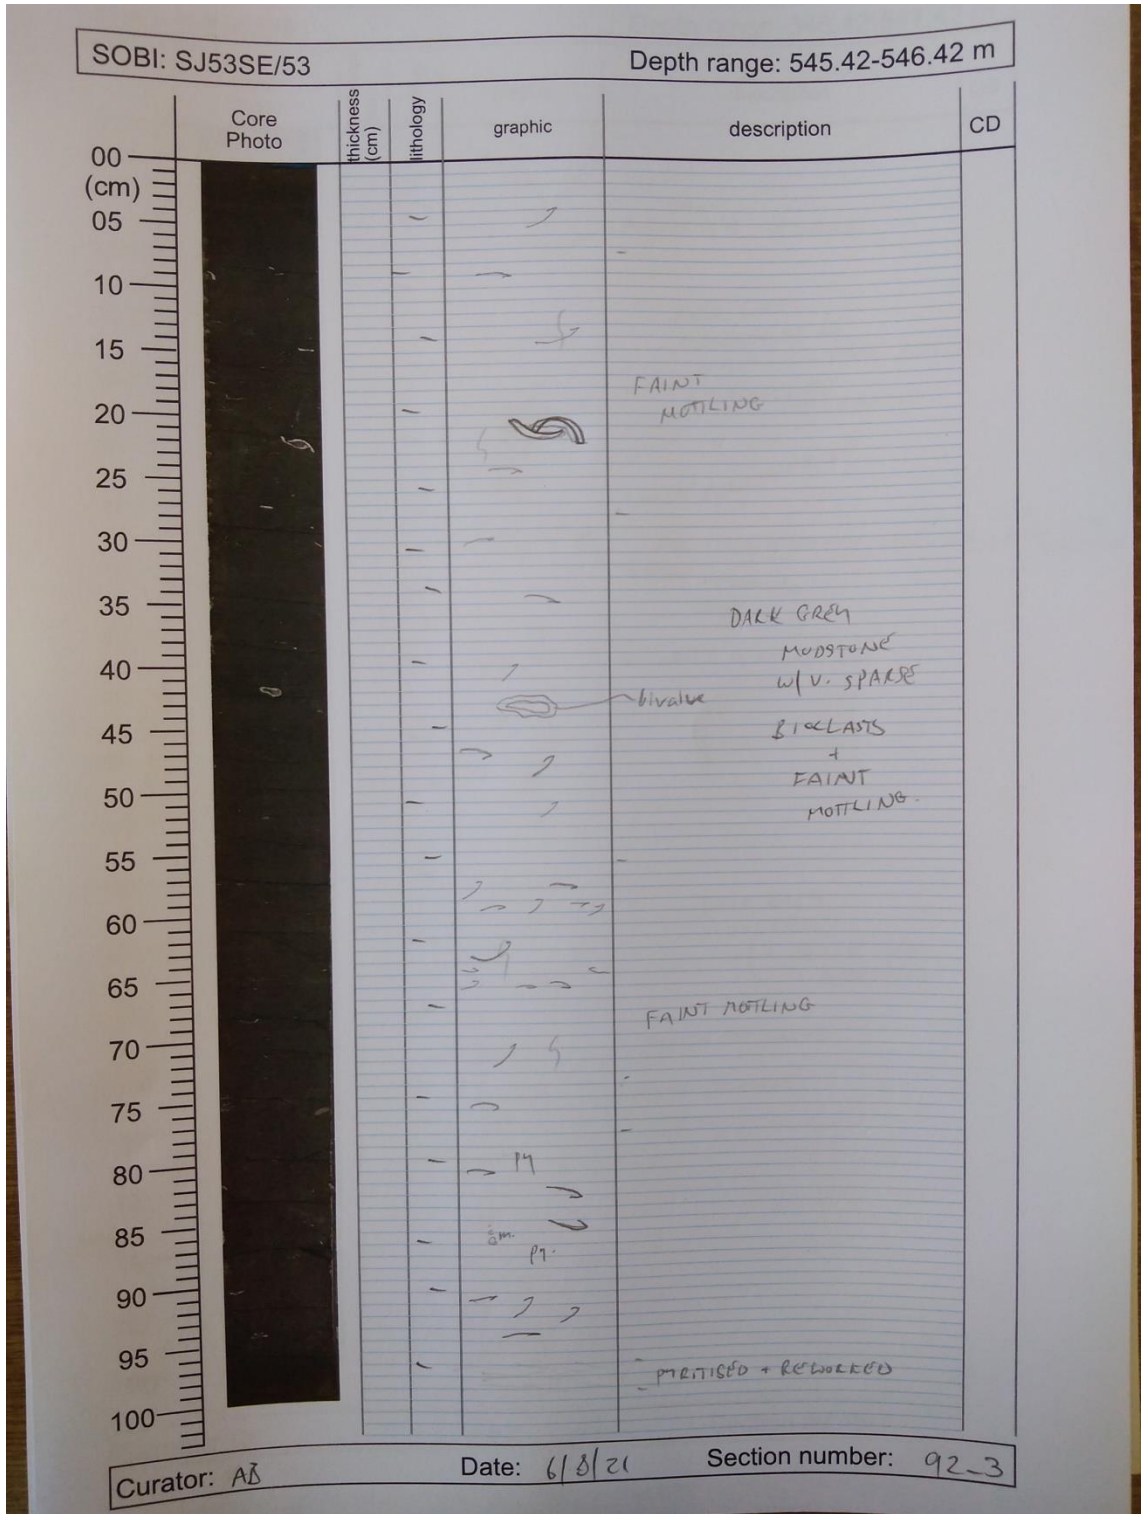 SOBI: SJ53SE/53
Depth range: 545.42-546.42 m
Core
Photo
thickness
(cm)
lithology
graphic
description
CD
00
(cm)
05
10
15
20
25
30
35
40
45
50
55
60
65
70
75
80
85
90
95
100
FAINT
MOTTLING
DARK GREY
MUDSTONE
W/ V. SPARSE
BIOCLASTS
+
FAINT
MOTTLING.
bivalve
FAINT MOTTLING
PY
PY.
PYRITISED + REWORKED
Curator: AB
Date: 6/8/21
Section number: 92_3